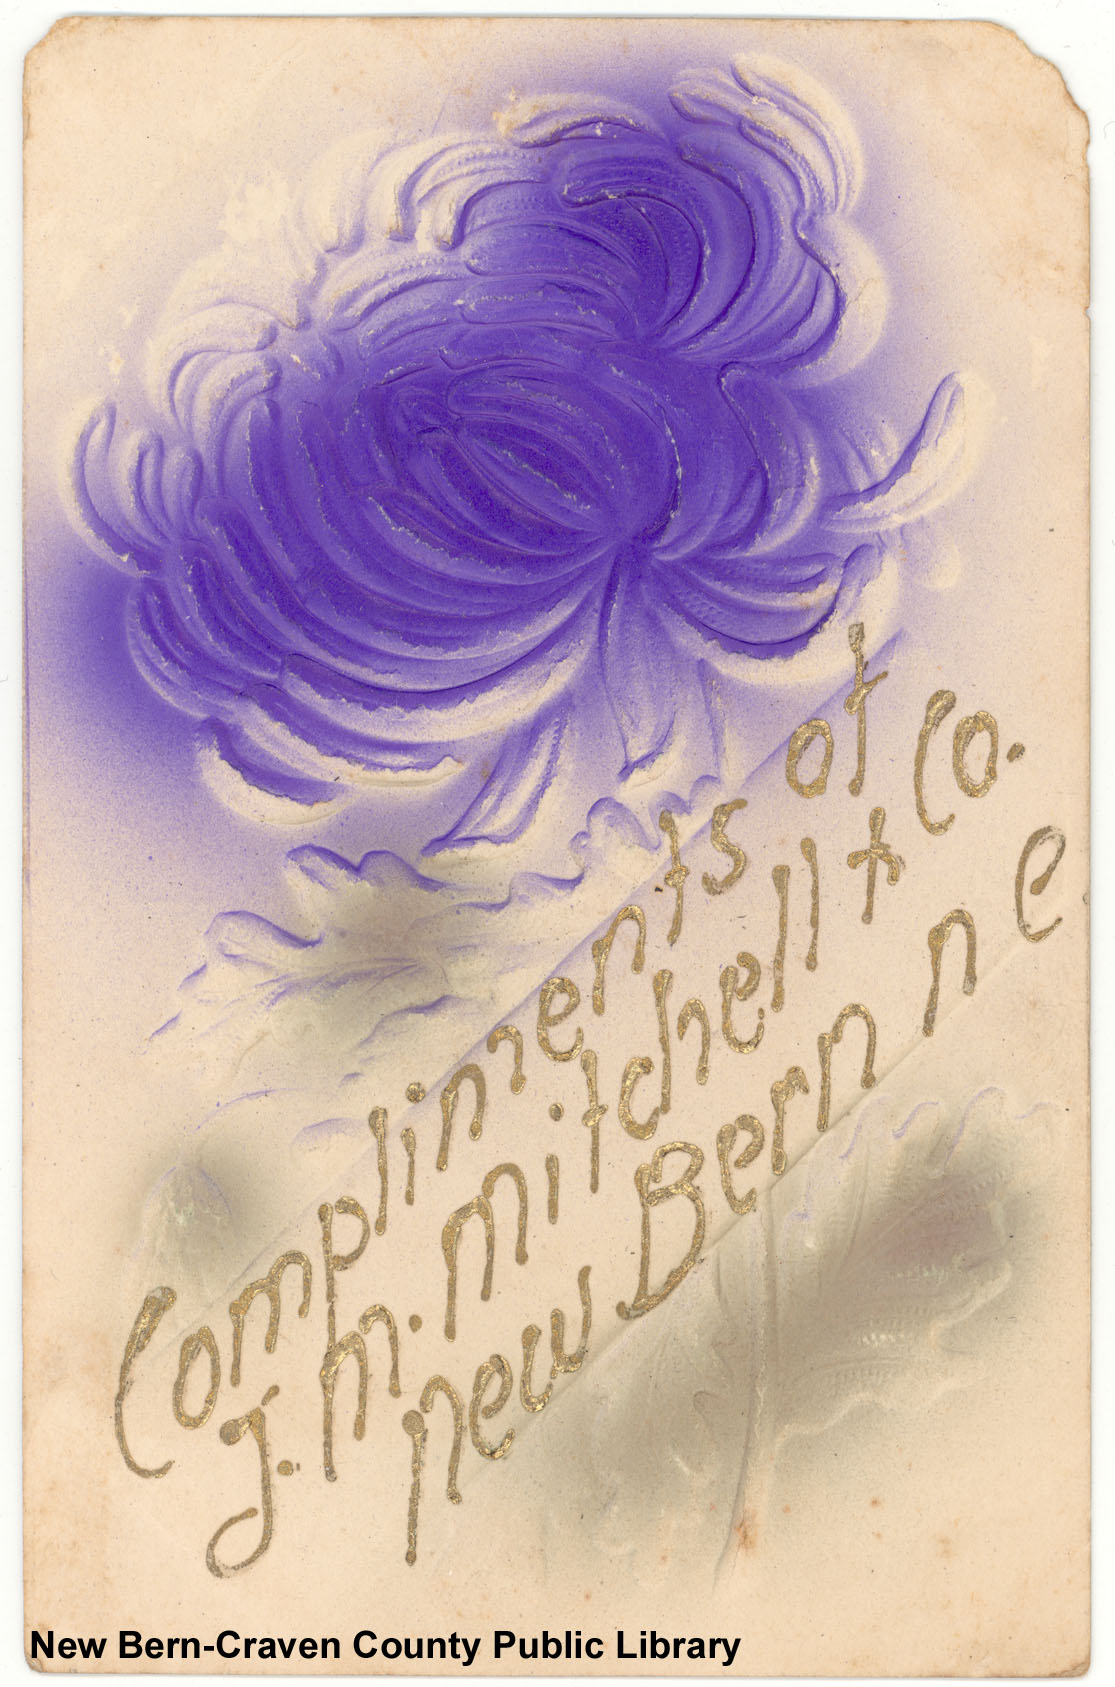 Compliments of
J. M. Mitchell + Co.
New Bern n C
New Bern-Craven County Public Library